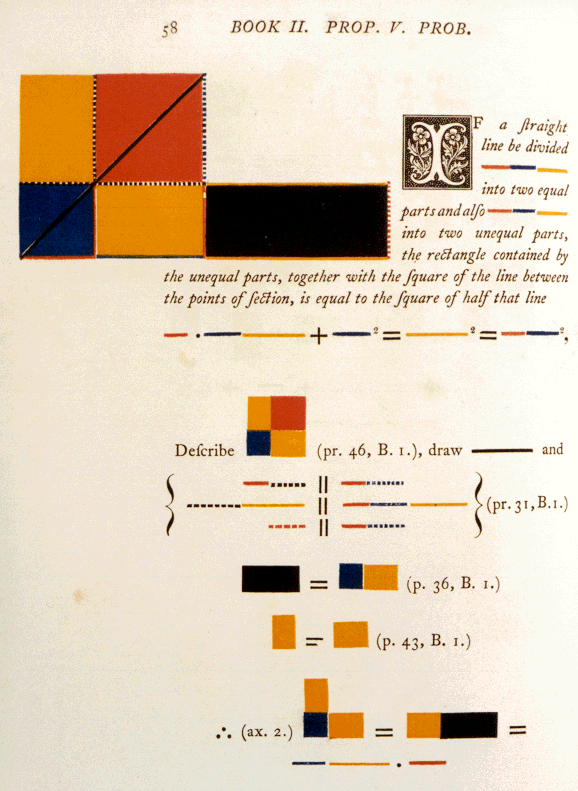 58 BOOK II. PROP. V. PROB.
IF a ſtraight
line be divided
into two equal
parts and alſo
into two unequal parts,
the rectangle contained by
the unequal parts, together with the ſquare of the line between
the points of ſection, is equal to the ſquare of half that line
. + ² = ² = ²,
Deſcribe (pr. 46, B. 1.), draw and
{ || || || } (pr. 31, B.1.)
= (p. 36, B. 1.)
= (p. 43, B. 1.)
∴ (ax. 2.) = =
.